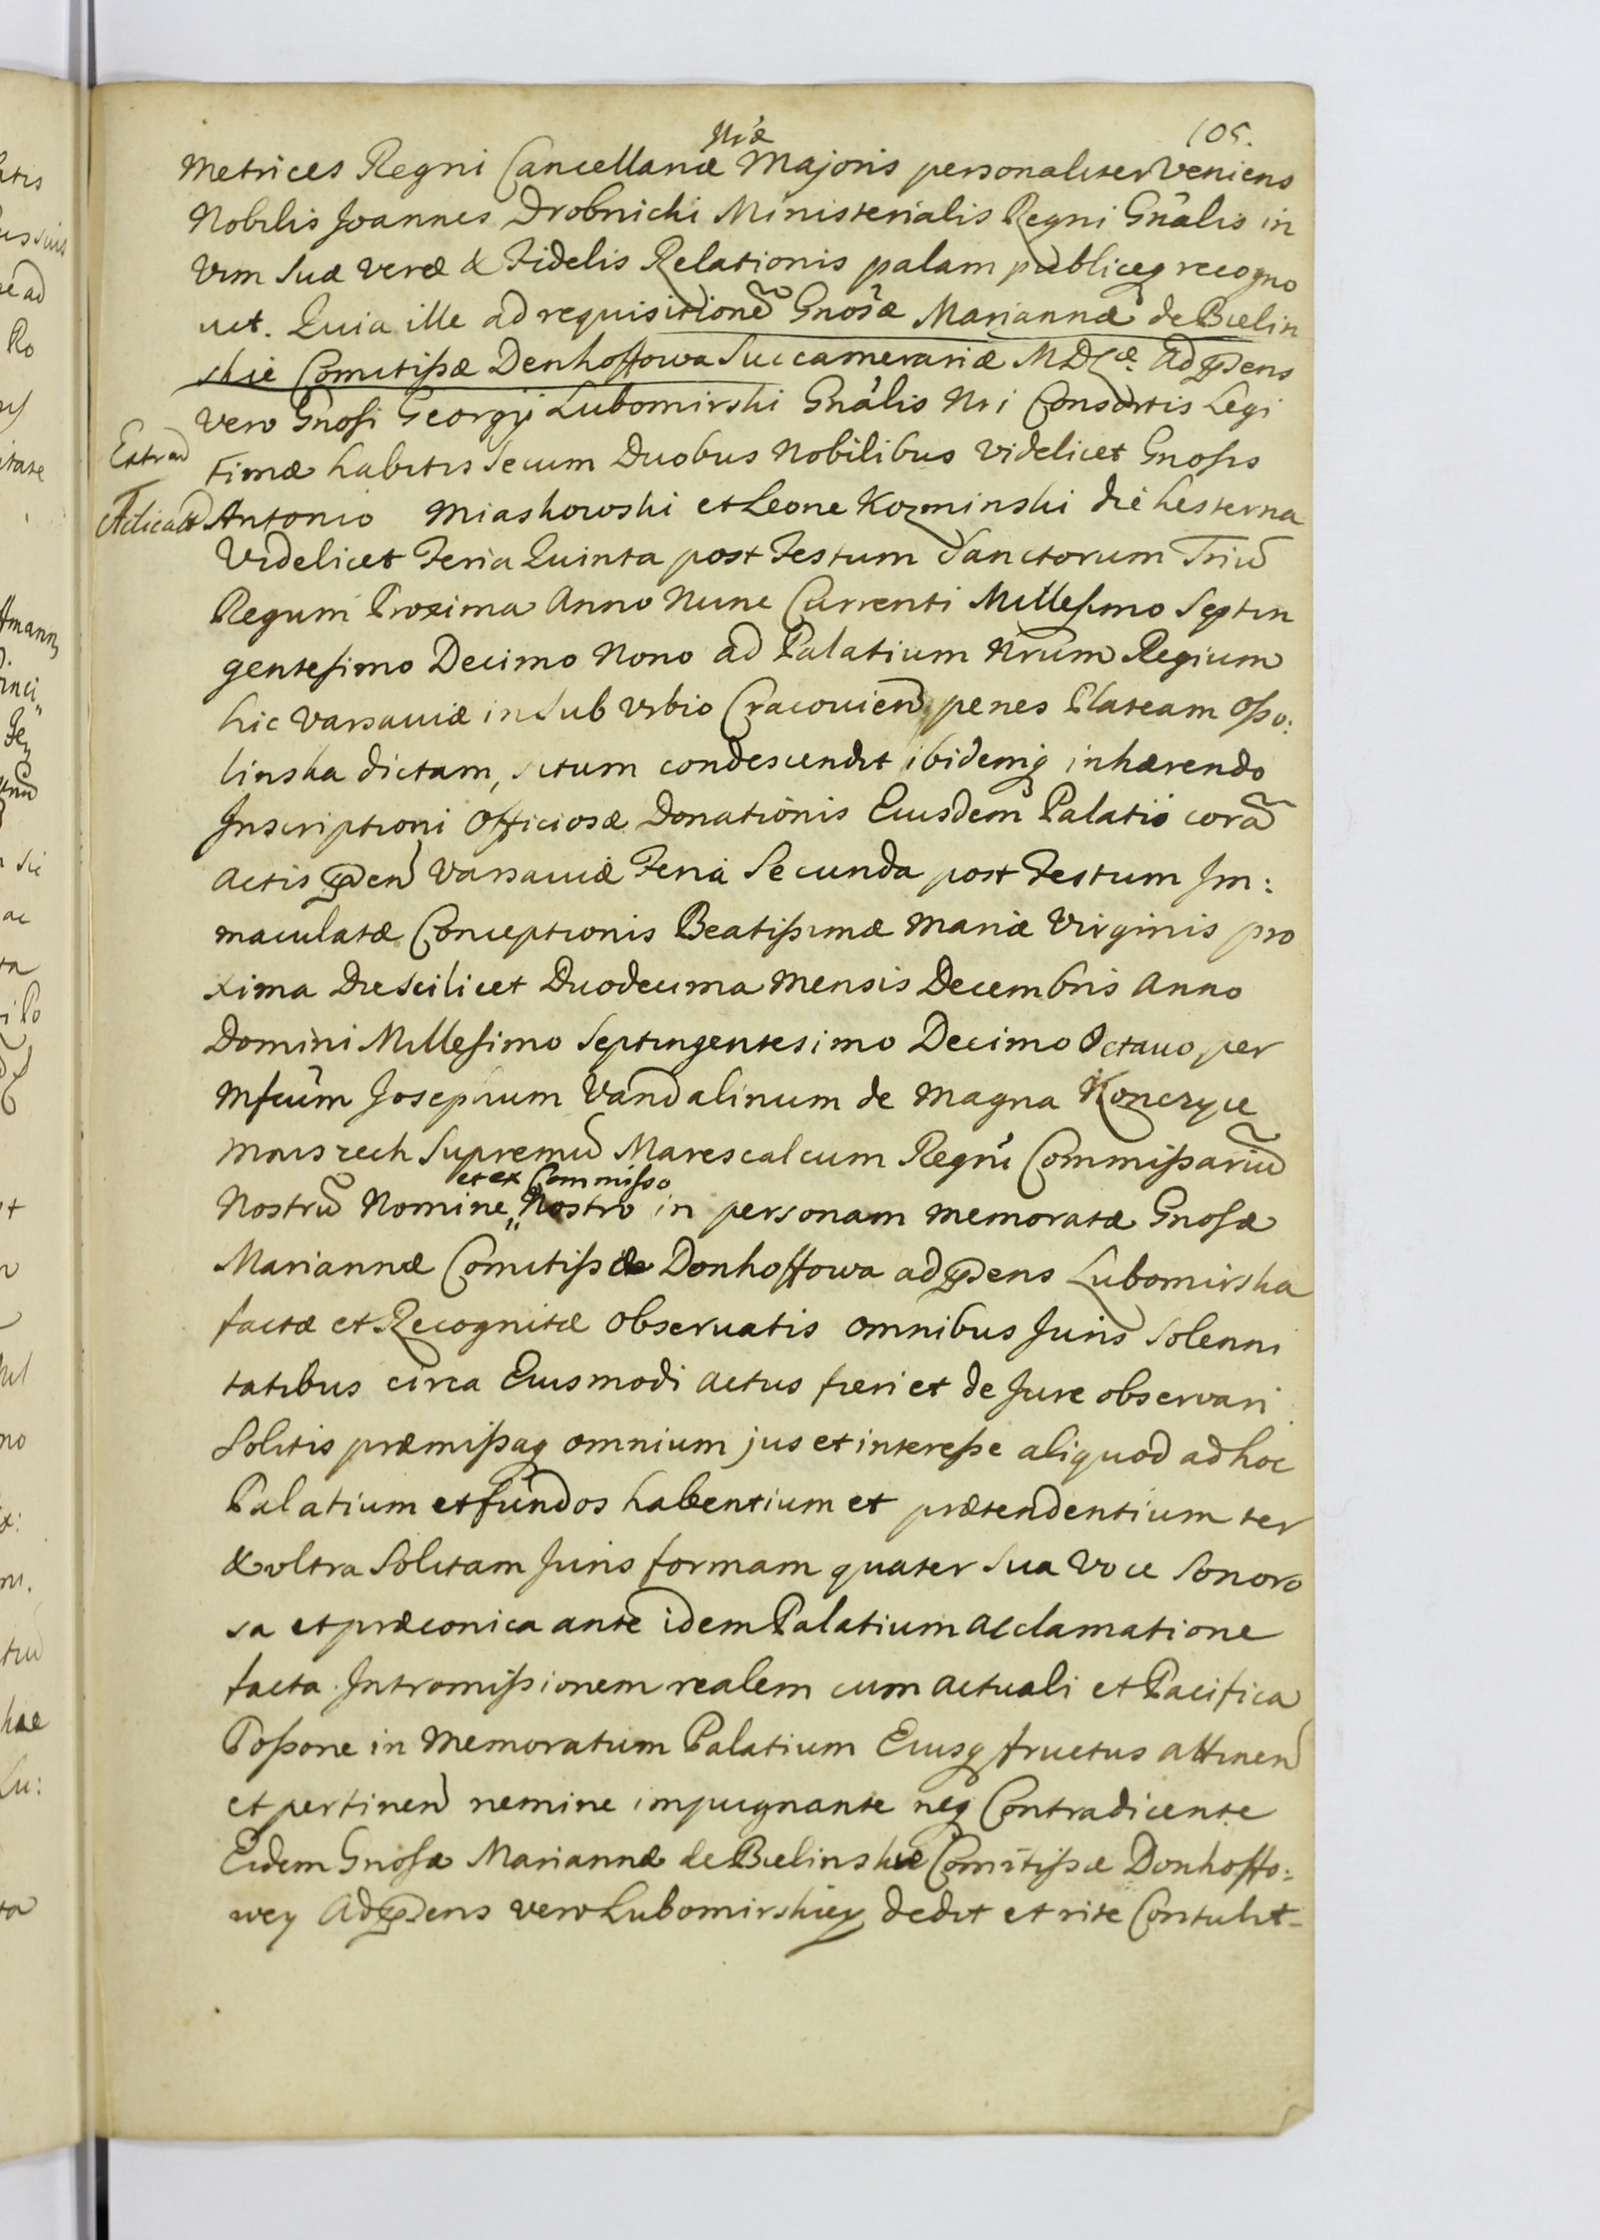 105.
Nræ
Metrices Regni Cancellariæ Majoris personaliter Veniens
Nobilis Joannes Drobnicki Ministerialis Regni Gnâlis in
Vim Suæ veræ & Fidelis Relationis palam publiceq recogno
uit. Quia ille ad requisitionẽ Gnosæ Mariannæ de Bielin
skie Comitißæ Denhoffowa Succamerariæ M D Læ. ad p̃sens
vero Gnosi Georgij Lubomirski Gnâlis Nri Consortis Legi
Extrad
timæ habitis secum Duobus Nobilibus videlicet Gnosis
Antonio Miaskowski et Leone Kozminski die hesterna
Videlicet Feria Quinta post Festum Sanctorum Triũ
Regum Proxima Anno Nunc Currenti Millesimo Septin
gentesimo Decimo Nono ad Palatium Nrum Regium
hic Varsauiæ in Sub Vrbio Cracouien penes Plateam Oßo:
linska dictam, situm condescendit ibidemq inhærendo
Inscriptioni Officiosæ Donationis Eiusdem Palatii corã
Actis p̃sen Varsauiæ Feria Secunda post Festum Im:
maculatæ Conceptionis Beatißimæ Mariæ Virginis pro
xima Die Scilicet Duodecima Mensis Decembris Anno
Domini Millesimo Septingentesimo Decimo Octauo per
Mfcum Josephum Vandalinum de Magna Konczyce
Mniszech Supremũ Marescalcum Regni Commißariũ
et ex Commißo
Nostrũ Nomine „ Nostro in personam memoratæ Gnosæ
Mariannæ Comitißæ Donhoffowa ad p̃sens Lubomirska
factæ et Recognitæ observatis omnibus Juris Solenni
tatibus circa Eiusmodi actus fieri et de Jure observari
Solitis præmißaq omnium jus et intereße aliquod ad hoc
Palatium et fundos habentium et prætendentium ter
& vltra Solitam Juris formam quater Sua Voce Sonoro
sa et præconica ante idem Palatium acclamatione
facta Intromißionem realem cum actuali et Pacifica
Poßone in Memoratum Palatium Eiusq fructus attinen
et pertinen nemine impugnante neq Contradicente
Eidem Gnosæ Mariannæ de Bielinskie Comitißæ Donhoffo:
wey ad p̃sens vero Lubomirskiey dedit et rite Contulit